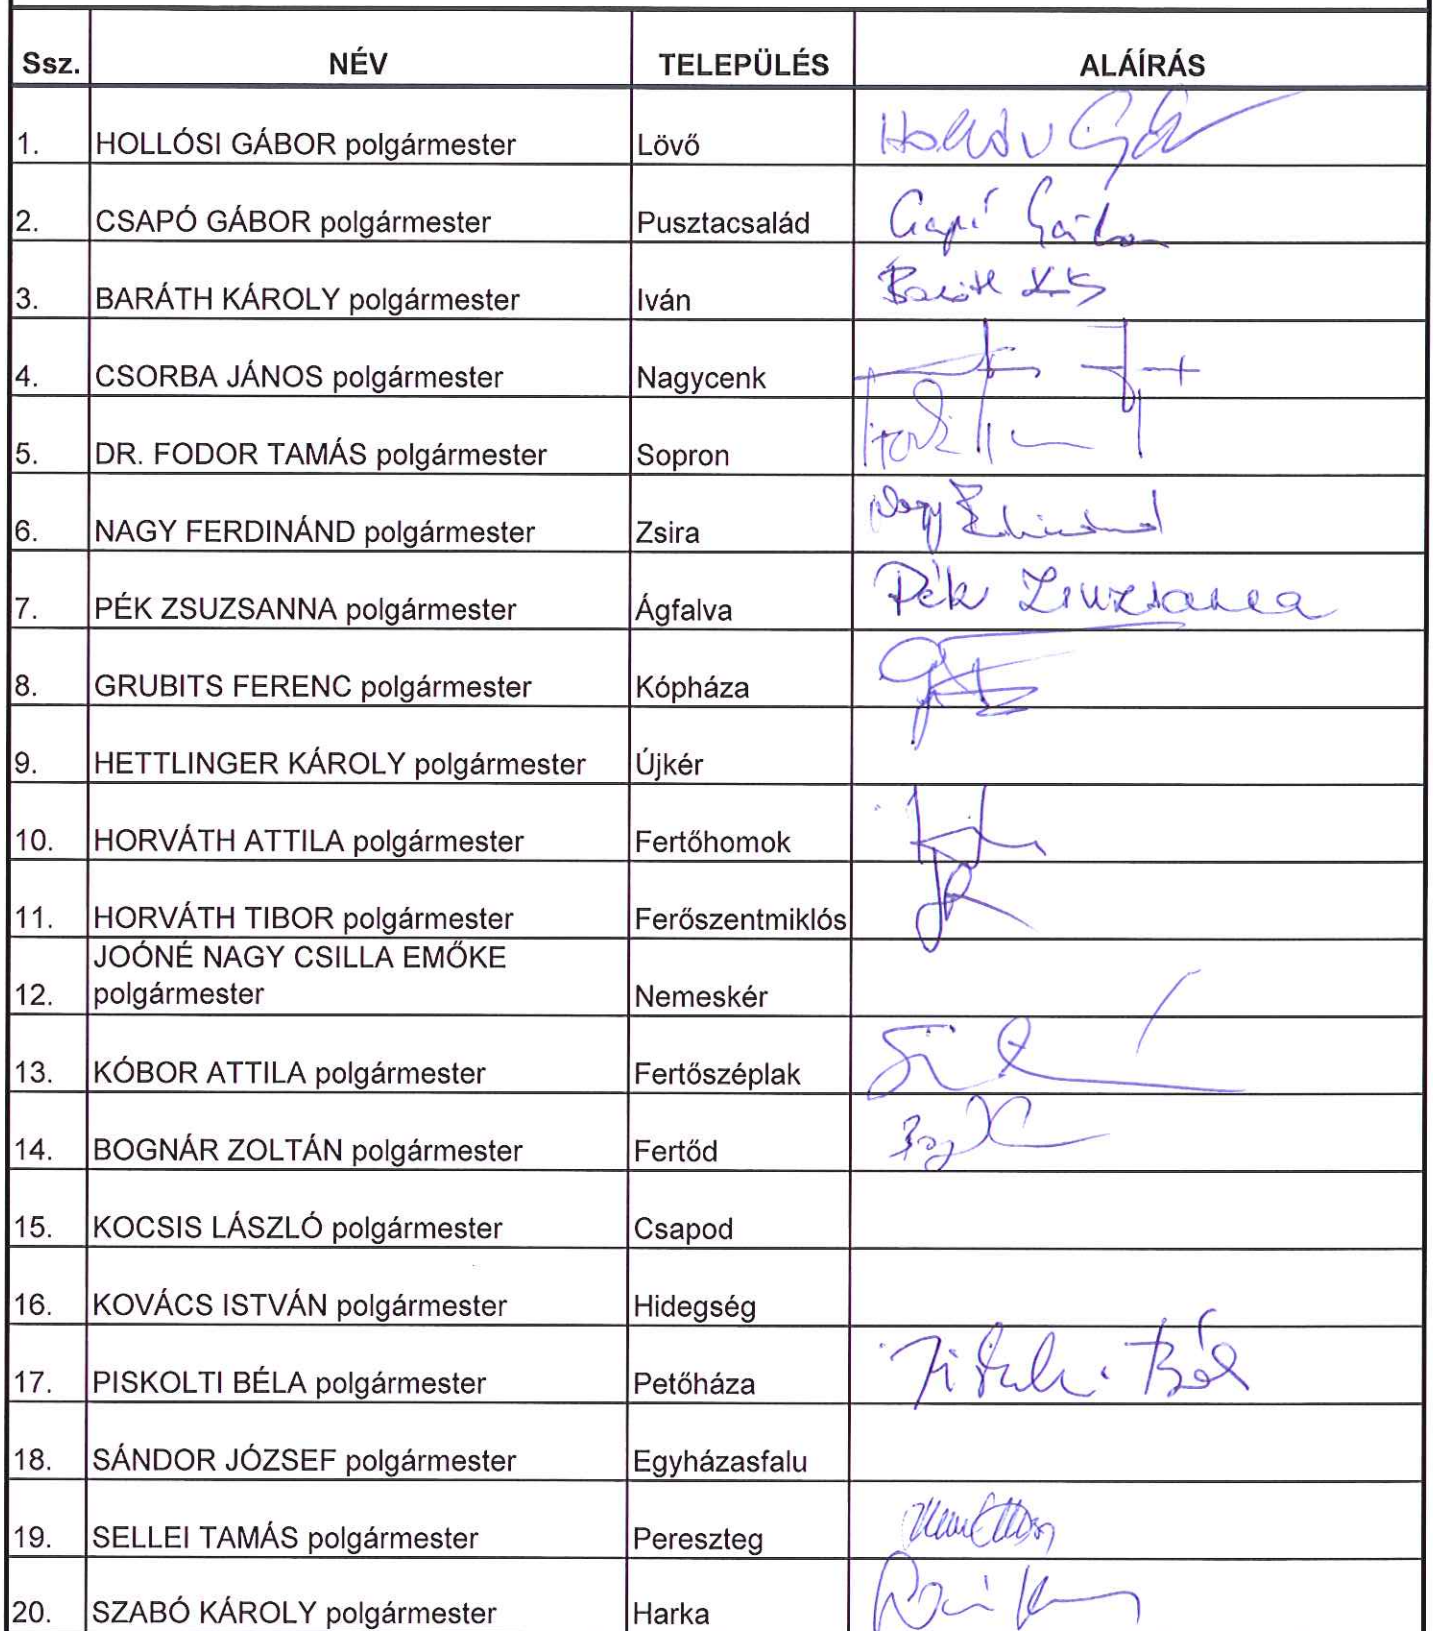 Ssz. NÉV TELEPÜLÉS ALÁÍRÁS
1. HOLLÓSI GÁBOR polgármester Lövő
2. CSAPÓ GÁBOR polgármester Pusztacsalád Csapó Gábor
3. BARÁTH KÁROLY polgármester Iván
4. CSORBA JÁNOS polgármester Nagycenk
5. DR. FODOR TAMÁS polgármester Sopron
6. NAGY FERDINÁND polgármester Zsira Nagy Ferdinánd
7. PÉK ZSUZSANNA polgármester Ágfalva Pék Zsuzsanna
8. GRUBITS FERENC polgármester Kópháza
9. HETTLINGER KÁROLY polgármester Újkér
10. HORVÁTH ATTILA polgármester Fertőhomok
11. HORVÁTH TIBOR polgármester Ferőszentmiklós
JOÓNÉ NAGY CSILLA EMŐKE
12. polgármester Nemeskér
13. KÓBOR ATTILA polgármester Fertőszéplak
14. BOGNÁR ZOLTÁN polgármester Fertőd
15. KOCSIS LÁSZLÓ polgármester Csapod
16. KOVÁCS ISTVÁN polgármester Hidegség
17. PISKOLTI BÉLA polgármester Petőháza
18. SÁNDOR JÓZSEF polgármester Egyházasfalu
19. SELLEI TAMÁS polgármester Pereszteg
20. SZABÓ KÁROLY polgármester Harka